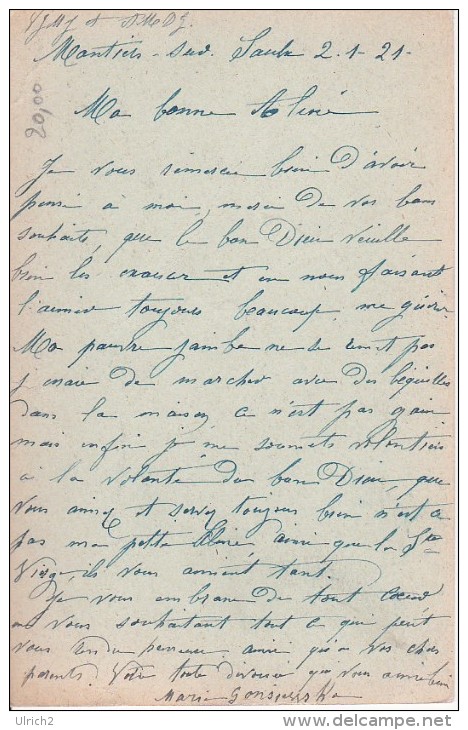 Montiers-sur-Saulx 2-1-21-
20,00
Ma bonne Aline
Je vous remercie bien d'avoir
pensé à moi, merci de vos bons
souhaits, que le bon Dieu veuille
bien les exaucer et en nous faisant
l'aimer toujours beaucoup me guérir
Ma pauvre jambe ne se remet pas
j'essaie de marcher avec des béquilles
dans la maison ce n'est pas gai
mais enfin je me soumets volontiers
à la volonté du bon Dieu, que
vous aimez et servez toujours bien n'est ce
pas ma petite Aline, ainsi que la Ste
Vierge, ils vous aiment tant.
Je vous embrasse de tout cœur
en vous souhaitant tout ce que peut
vous rendre heureuse ainsi qu'à vos chers
parents. Votre toute dévouée qui vous aime bien
Maria
Ulrich2
delcampe.net